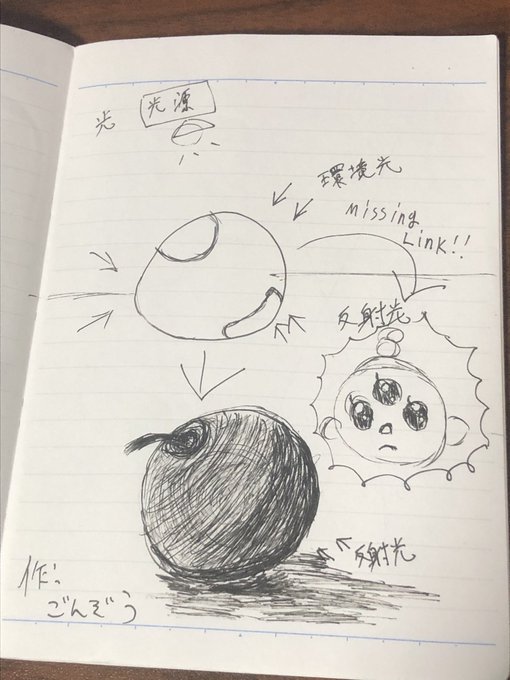 光 光源
環境光
missing
Link!!
反射光
反射光
作:
ごんぞう